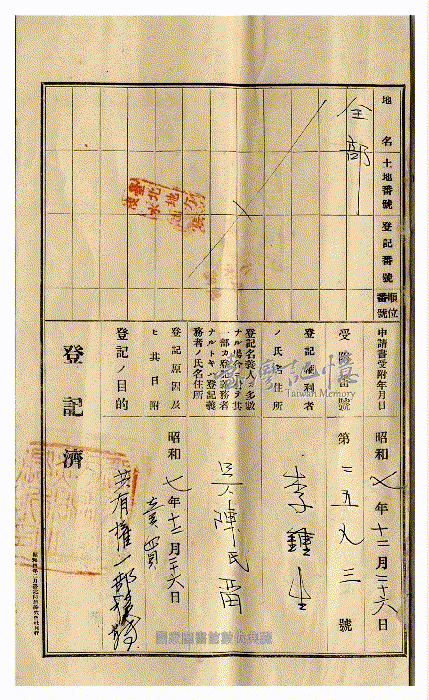 地名
土地番號
登記番號
順位番號
全部
申請書受附年月日
昭和七年十二月二十六日
受附番號
第二五九三號
登記權利者ノ氏名住所
李鐘生
登記名義人カ多數ナル場合ニ於テ其一部カ登記義務者ナルトキハ登記義務者ノ氏名住所
吳陳氏
登記原因及ヒ其日附
昭和七年十二月二十六日
賣買
登記ノ目的
共有權一部移轉
登記濟
臺灣記憶
Taiwan Memory
國家圖書館數位典藏